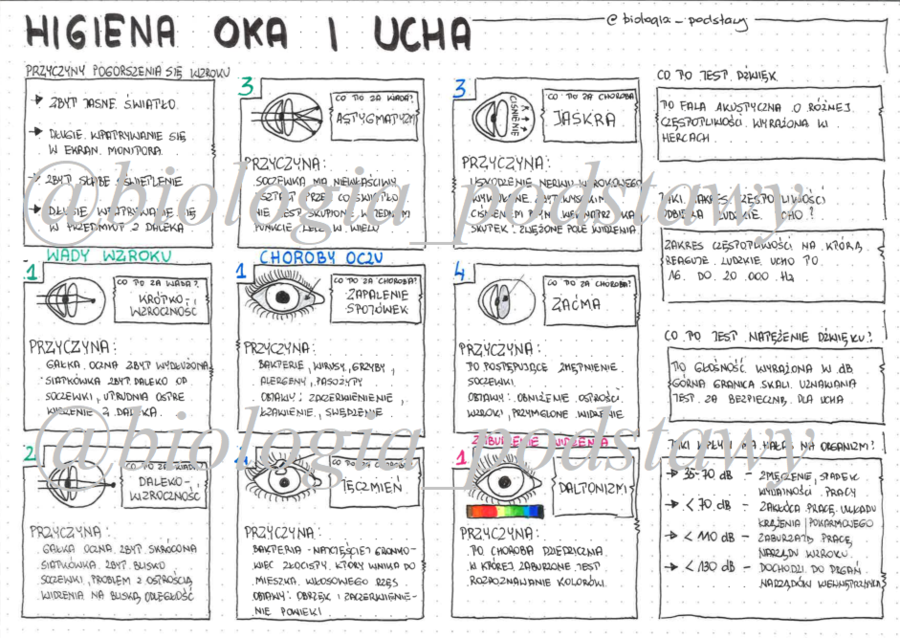 HIGIENA OKA I UCHA
@biologia_podstawy
PRZYCZYNY POGORSZENIA SIĘ WZROKU
→ ZBYT JASNE ŚWIATŁO
→ DŁUGIE WPATRYWANIE SIĘ
W EKRAN MONITORA
→ ZBYT SŁABE OŚWIETLENIE
→ DŁUGIE WPATRYWANIE SIĘ
W PRZEDMIOT Z DALEKA
WADY WZROKU
1
CO TO ZA WADA?
KRÓTKO-
WZROCZNOŚĆ
PRZYCZYNA:
GAŁKA OCZNA ZBYT WYDŁUŻONA
SIATKÓWKA ZBYT DALEKO OD
SOCZEWKI, UTRUDNIA OSTRE
WIDZENIE Z DALEKA.
2
CO TO ZA WADA?
DALEKO-
WZROCZNOŚĆ
PRZYCZYNA:
GAŁKA OCZNA ZBYT SKRÓCONA
SIATKÓWKA ZBYT BLISKO
SOCZEWKI, PROBLEM Z OSTROŚCIĄ
WIDZENIA NA BLISKĄ ODLEGŁOŚĆ
3
CO TO ZA WADA?
ASTYGMATYZM
PRZYCZYNA:
SOCZEWKA MA NIEWŁAŚCIWY
KSZTAŁT PRZEZ CO ŚWIATŁO
NIE JEST SKUPIONE W JEDNYM
PUNKCIE LECZ W WIELU
CHOROBY OCZU
1
CO TO ZA CHOROBA?
ZAPALENIE
SPOJÓWEK
PRZYCZYNA:
BAKTERIE, WIRUSY, GRZYBY,
ALERGENY, PASOŻYTY
OBJAWY: ZACZERWIENIENIE,
ŁZAWIENIE, SWĘDZENIE
CO TO ZA CHOROBA?
JĘCZMIEŃ
PRZYCZYNA:
BAKTERIA - NAJCZĘŚCIEJ GRONKO-
WIEC ZŁOCISTY, KTÓRY WNIKA DO
MIESZKA WŁOSOWEGO RZĘS
OBJAWY: OBRZĘK I ZACZERWIENIE-
NIE POWIEKI
3
CIŚNIENIE
CO TO ZA CHOROBA
JASKRA
PRZYCZYNA:
USZKODZENIE NERWU WZROKOWEGO
WYWOŁANE ZBYT WYSOKIM
CIŚNIENIEM PŁYNU WEWNĄTRZ OKA
SKUTEK: ZWĘŻONE POLE WIDZENIA
4
CO TO ZA CHOROBA?
ZAĆMA
PRZYCZYNA:
TO POSTĘPUJĄCE ZMĘTNIENIE
SOCZEWKI
OBJAWY: OBNIŻENIE OSTROŚCI
WZROKU, PRZYMGLONE WIDZENIE
ZABURZENIE WIDZENIA
1
DALTONIZM
PRZYCZYNA:
TO CHOROBA DZIEDZICZNA
W KTÓREJ ZABURZONE JEST
ROZPOZNAWANIE KOLORÓW.
CO TO JEST DŹWIĘK
TO FALA AKUSTYCZNA O RÓŻNEJ
CZĘSTOTLIWOŚCI WYRAŻONA W
HERCACH
JAKI ZAKRES CZĘSTOTLIWOŚCI
ODBIERA LUDZKIE UCHO?
ZAKRES CZĘSTOTLIWOŚCI NA KTÓRĄ
REAGUJE LUDZKIE UCHO TO
16 DO 20 000 Hz
CO TO JEST NATĘŻENIE DŹWIĘKU?
TO GŁOŚNOŚĆ WYRAŻONA W dB
GÓRNA GRANICA SKALI UZNAWANA
JEST ZA BEZPIECZNĄ DLA UCHA
JAKI WPŁYW MA HAŁAS NA ORGANIZM?
→ 35-70 dB - ZMĘCZENIE, SPADEK
WYDAJNOŚCI PRACY
→ < 70 dB - ZAKŁÓCA PRACĘ UKŁADU
KRĄŻENIA I POKARMOWEGO
→ < 110 dB - ZABURZAJĄ PRACĘ
NARZĄDU WZROKU
→ < 130 dB - DOCHODZI DO DRGAŃ
NARZĄDÓW WEWNĘTRZNYCH
@biologia_podstawy
@biologia_podstawy